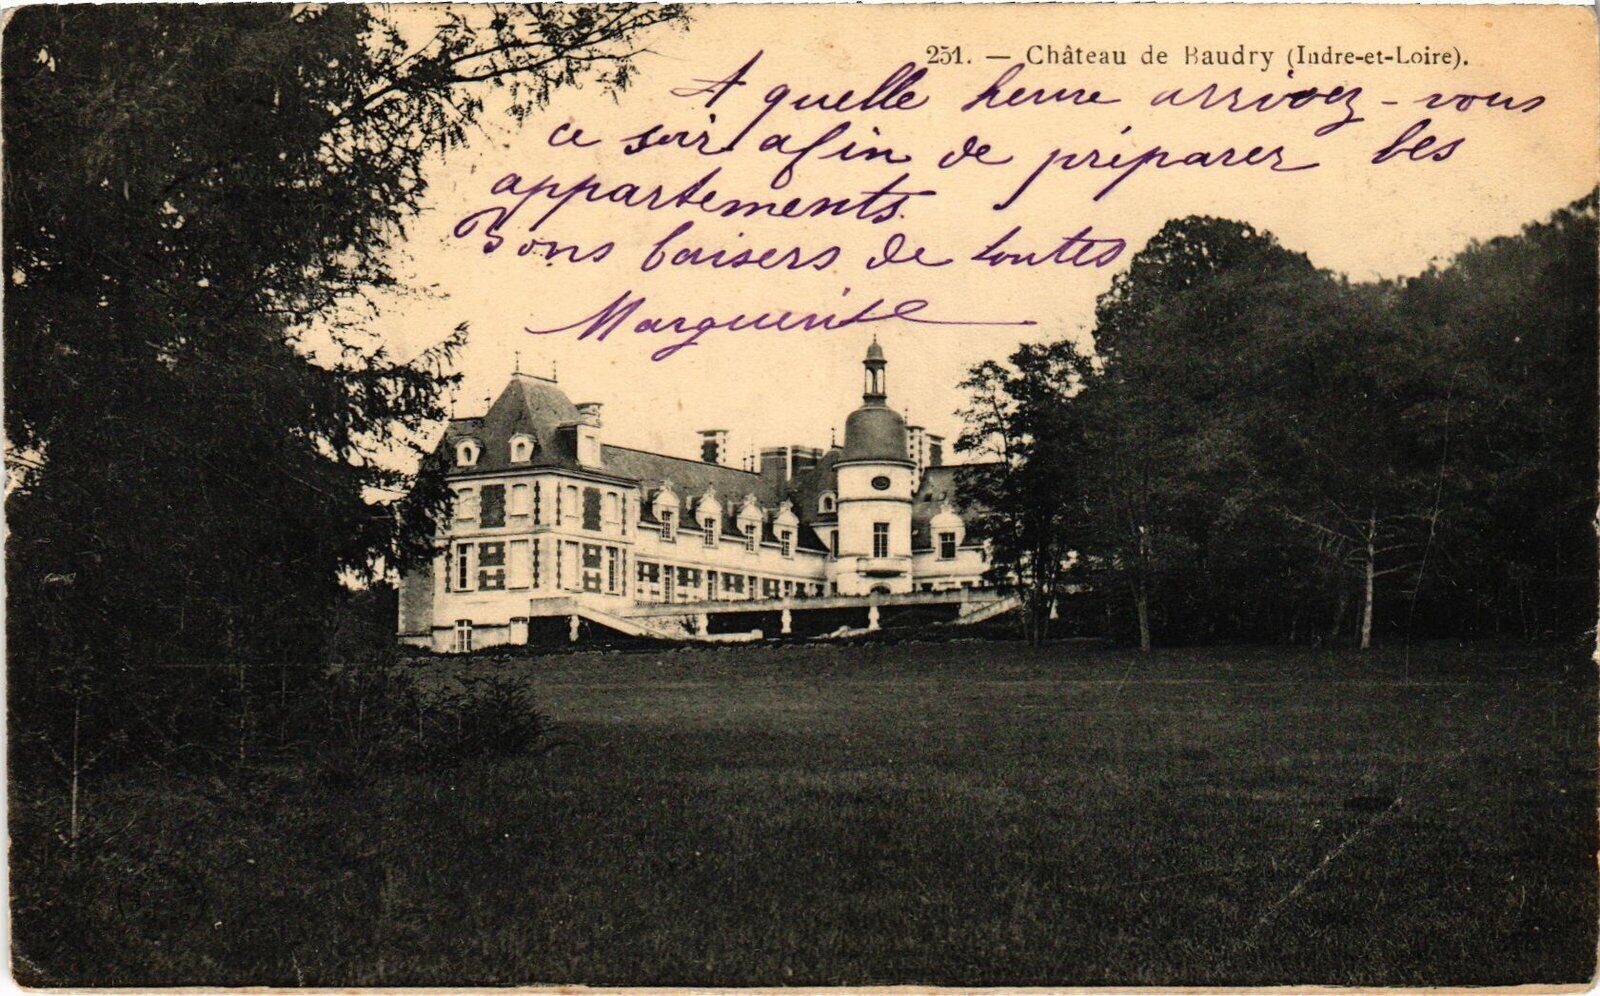 251. — Château de Baudry (Indre-et-Loire).
A quelle heure arrivez-vous
ce soir afin de préparer les
appartements.
Bons baisers de toutes
Marguerite